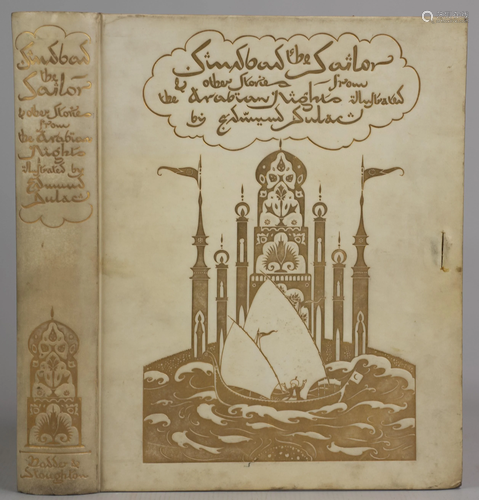 Sindbad
the
Sailor
& other Stories
from
the Arabian
Nights
illustrated by
Edmund
Dulac
Hodder &
Stoughton
Sindbad the Sailor
& other Stories from
the Arabian Nights illustrated
by Edmund Dulac